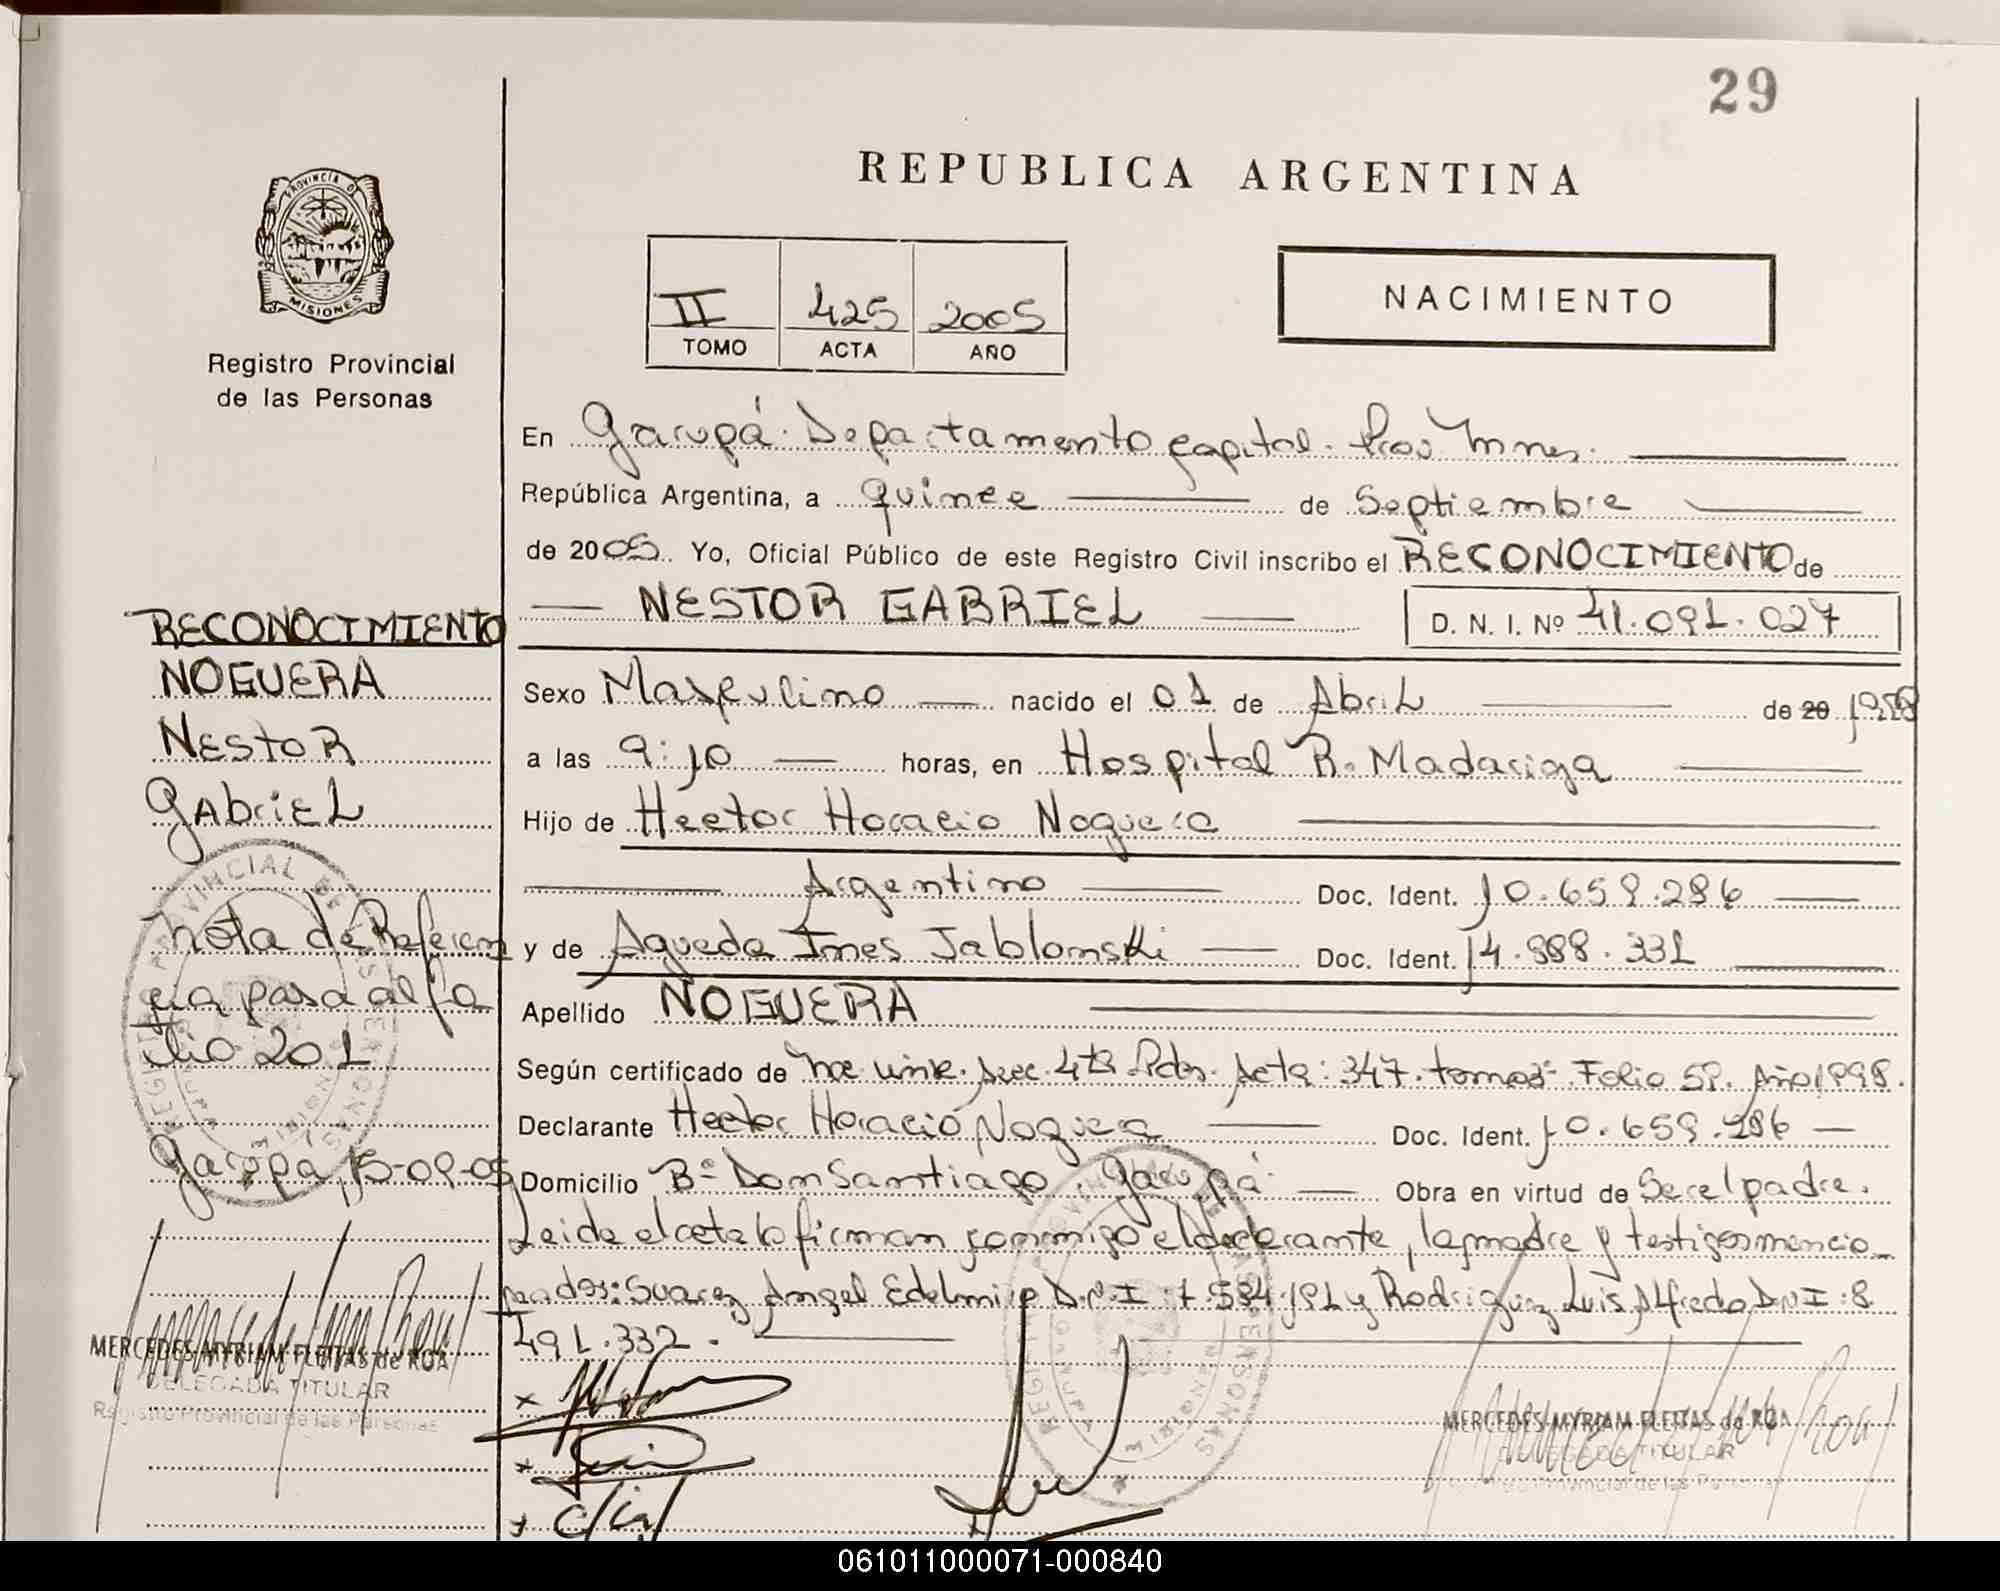 29
REPUBLICA ARGENTINA
PROVINCIA D
MISIONES
Registro Provincial
de las Personas
II 425 2005
TOMO ACTA AÑO
NACIMIENTO
En Garupá. Departamento Capital. Prov. Mnes.
República Argentina, a quince de Septiembre
de 2005. Yo, Oficial Público de este Registro Civil inscribo el RECONOCIMIENTO de
NESTOR GABRIEL D. N. I. Nº 41.091.027
RECONOCIMIENTO
NOGUERA
Nestor
Gabriel
Sexo Masculino nacido el 01 de Abril de 20 1998
a las 9:10 horas, en Hospital R. Madariaga
Hijo de Hector Horacio Noguera
Argentino Doc. Ident. 10.659.286
y de Agueda Ines Jablonski Doc. Ident. 14.888.331
Apellido NOGUERA
Según certificado de Sec. 4ta Pdas. Acta: 347. tomo Folio 59. Año 1998.
Declarante Hector Horacio Noguera Doc. Ident. 10.659.286
Domicilio Bº Don Santiago. Garupá Obra en virtud de Ser el padre.
Leida el acta lo firman conmigo el declarante, la madre y testigos mencio
nados: Suarez Angel Edelmiro D.N.I: 7.584.191 y Rodriguez Luis Alfredo D.N.I: 8.
491.332.
nota de Referen
cia para al fo
lio 201
Garupa, 15-09-05
MERCEDES MYRIAM FLEITAS de ROA
DELEGADA TITULAR
Registro Provincial de las Personas
MERCEDES MYRIAM FLEITAS de ROA
DELEGADA TITULAR
Registro Provincial de las Personas
061011000071-000840